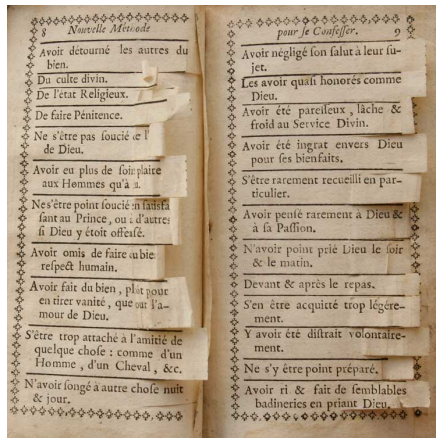 8 Nouvelle Méthode
Avoir détourné les autres du
bien.
Du culte divin.
De l'état Religieux.
De faire Pénitence.
Ne s'être pas soucié de l'
de Dieu.
Avoir eu plus de soin plaire
aux Hommes qu'à
Ne s'être point soucié en satisfa
sant au Prince, ou à d'autres
si Dieu y étoit offensé.
Avoir omis de faire du bien
respect humain.
Avoir fait du bien, plût pour
en tirer vanité, que our l'a-
mour de Dieu.
S'être trop attaché à l'amitié de
quelque chose : comme d'un
Homme, d'un Cheval, &c.
N'avoir songé à autre chose nuit
& jour.
pour se Confesser. 9
Avoir négligé son salut à leur su-
jet.
Les avoir quasi honorés comme
Dieu.
Avoir été paresseux, lâche &
froid au Service Divin.
Avoir été ingrat envers Dieu
pour ses bienfaits.
S'être rarement recueilli en par-
ticulier.
Avoir pensé rarement à Dieu &
à sa Passion.
N'avoir point prié Dieu le soir
& le matin.
Devant & après le repas.
S'en être acquitté trop légére-
ment.
Y avoir été distrait volontaire-
ment.
Ne s'y être point préparé.
Avoir ri & fait de semblables
badineries en priant Dieu.